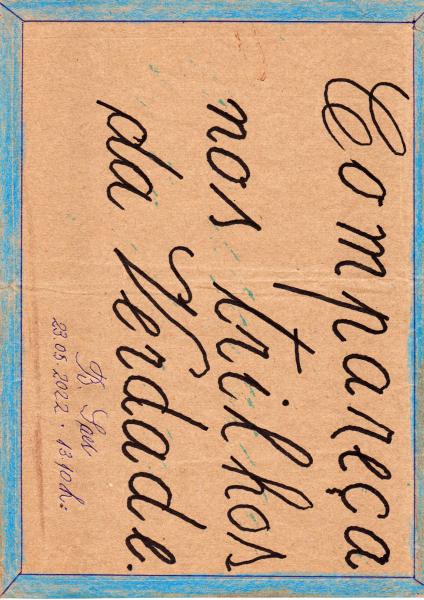 Compareça
nos trilhos
da Verdade.
23.05.2022. 13:10h: